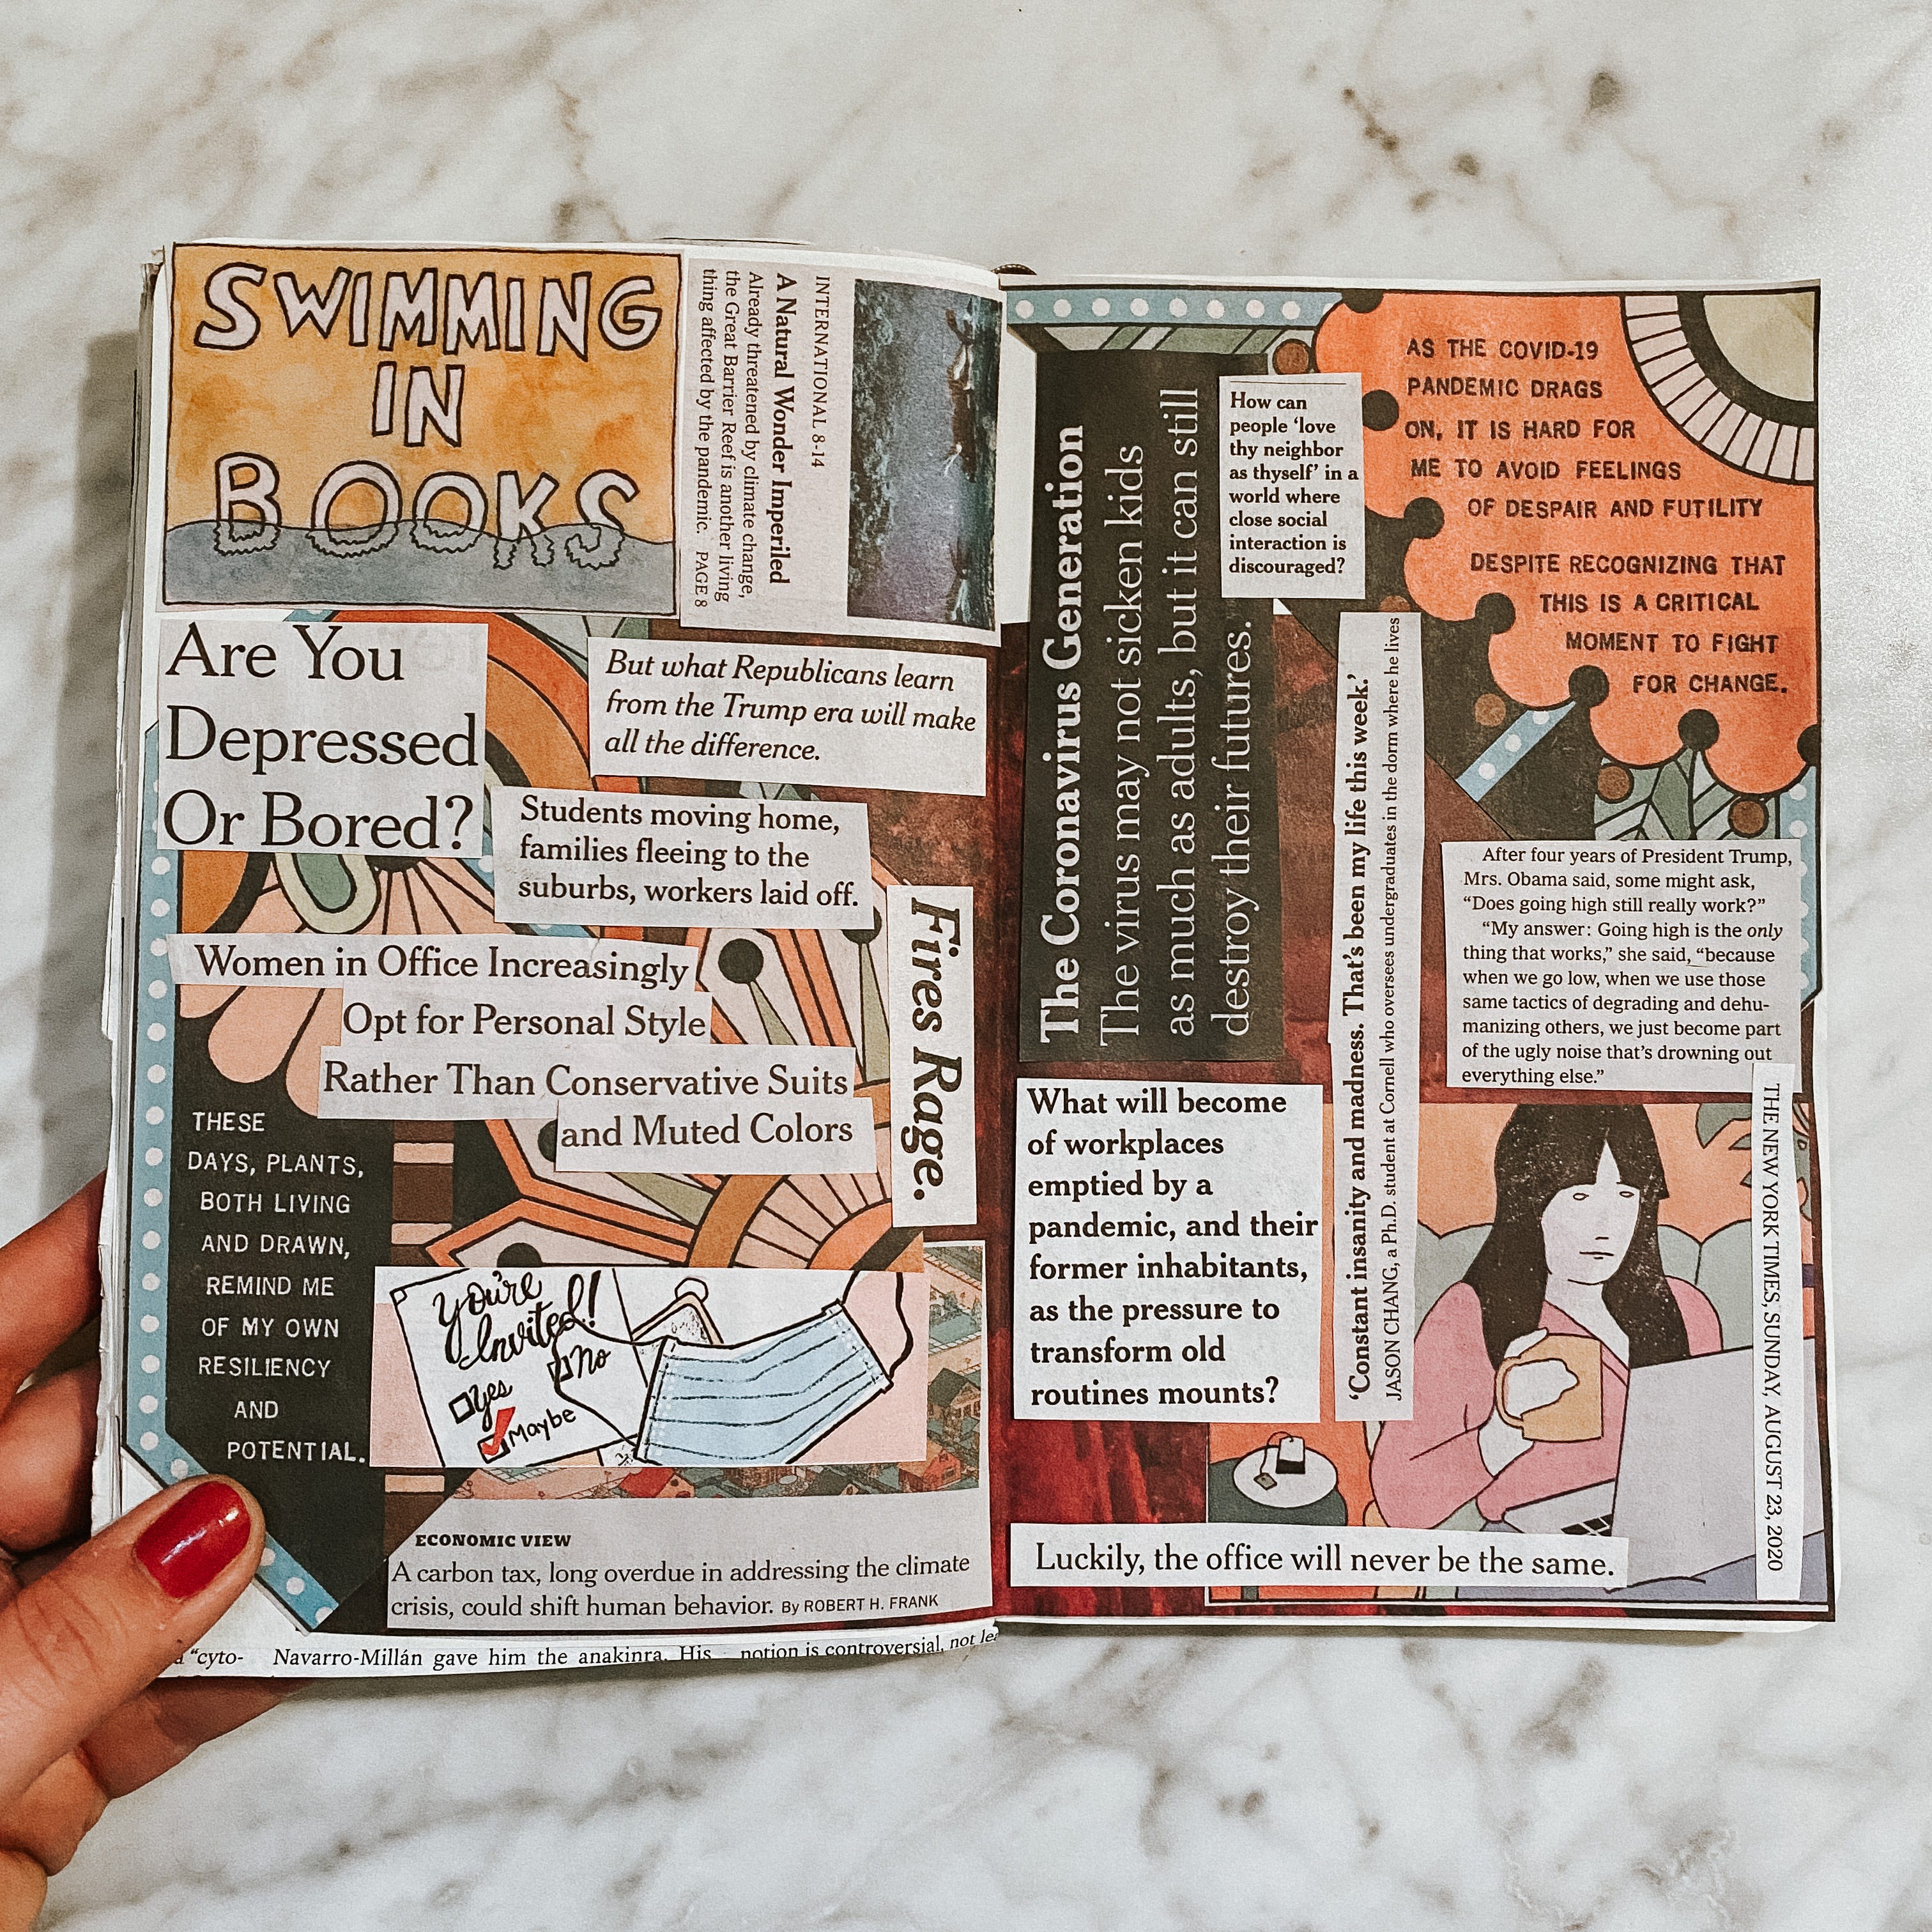 SWIMMING
IN
BOOKS
INTERNATIONAL 8-14
A Natural Wonder Imperiled
Already threatened by climate change,
the Great Barrier Reef is another living
thing affected by the pandemic. PAGE 8
Are You
Depressed
Or Bored?
But what Republicans learn
from the Trump era will make
all the difference.
Students moving home,
families fleeing to the
suburbs, workers laid off.
Women in Office Increasingly
Opt for Personal Style
Rather Than Conservative Suits
and Muted Colors
Fires Rage.
THESE
DAYS, PLANTS,
BOTH LIVING
AND DRAWN,
REMIND ME
OF MY OWN
RESILIENCY
AND
POTENTIAL.
You're
Invited!
No
Yes
Maybe
ECONOMIC VIEW
A carbon tax, long overdue in addressing the climate
crisis, could shift human behavior. By ROBERT H. FRANK
"cyto- Navarro-Millán gave him the anakinra. His notion is controversial, not
The Coronavirus Generation
The virus may not sicken kids
as much as adults, but it can still
destroy their futures.
How can
people ‘love
thy neighbor
as thyself’ in a
world where
close social
interaction is
discouraged?
AS THE COVID-19
PANDEMIC DRAGS
ON, IT IS HARD FOR
ME TO AVOID FEELINGS
OF DESPAIR AND FUTILITY
DESPITE RECOGNIZING THAT
THIS IS A CRITICAL
MOMENT TO FIGHT
FOR CHANGE.
‘Constant insanity and madness. That’s been my life this week.’
JASON CHANG, a Ph.D. student at Cornell who oversees undergraduates in the dorm where he lives
After four years of President Trump,
Mrs. Obama said, some might ask,
“Does going high still really work?”
“My answer: Going high is the only
thing that works,” she said, “because
when we go low, when we use those
same tactics of degrading and dehu-
manizing others, we just become part
of the ugly noise that’s drowning out
everything else.”
What will become
of workplaces
emptied by a
pandemic, and their
former inhabitants,
as the pressure to
transform old
routines mounts?
THE NEW YORK TIMES, SUNDAY, AUGUST 23, 2020
Luckily, the office will never be the same.